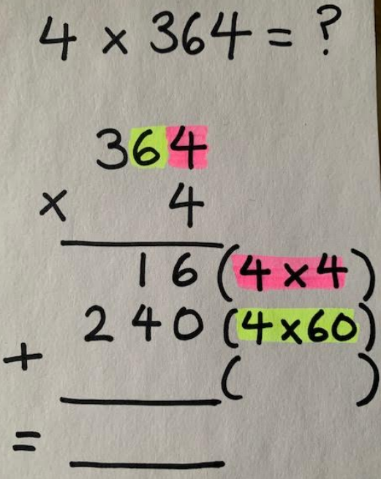 4 × 364 = ?
364
× 4
16 (4 × 4)
240 (4 × 60)
+ ( )
=